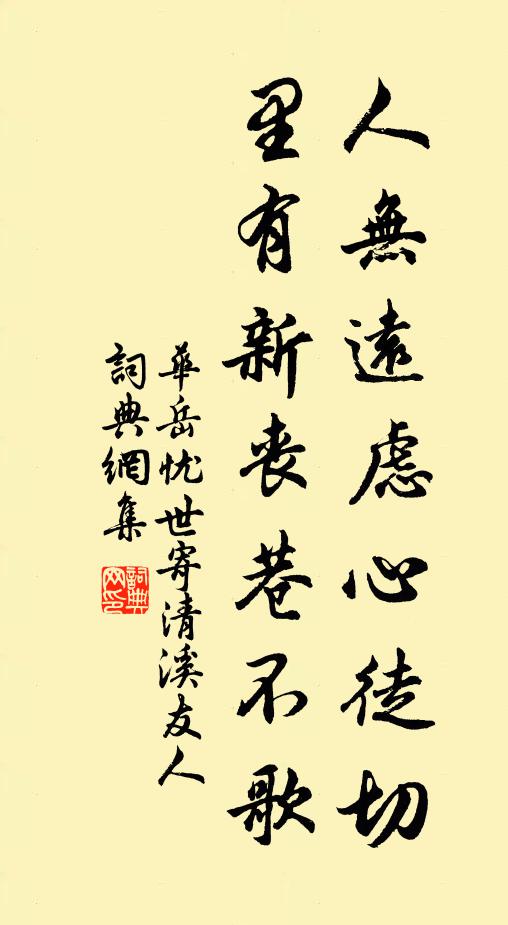 人無遠慮心徒切
里有新喪巷不歌
華岳忧世寄清溪友人
詞典網集
詞典网印